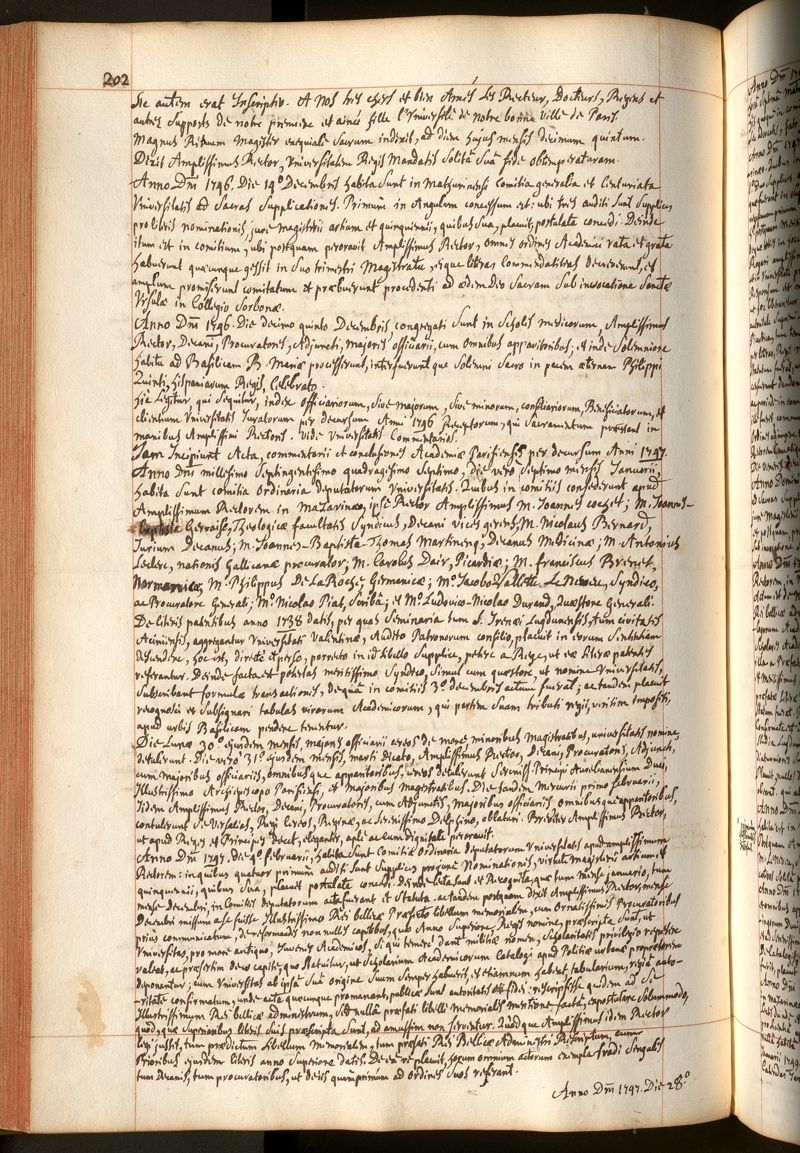 202
Sic autem erat Inscriptio. A Nos tres chers et bien Amés Les Recteur, Docteurs, Regens et
autres Supposts de notre premiere et ainée fille L'Université de notre bonne ville de Paris.
Magnus Rituum Magister exequiale Sacrum indixit, ad diem hujus mensis decimum quintum.
Dixit Amplissimus Rector, Universitatem Regis Mandatis Solitâ Suâ fide obtemperaturam.
Anno Dni 1746. Die 14° Decembris habita Sunt in Mathurinensi comitia generalia et Centuriata
Universitatis ad Sacras Supplicationes. Primùm in Angulum concessum est: ubi tres auditi Sunt Supplices
pro litteris nominationis, jure magisterii artium et quinquennii, quibus Sua, placuit, postulata concedi. Deinde
itum est in comitium, ubi postquam peroravit Amplissimus Rector, omnes ordines Academici rata et grata
habuerunt quaecunque gessit in Suo trimestri Magistratu, eique literas Commendatitias decreverunt, et
amplum promiserunt comitatum et praebuerunt procedenti ad aedem Deo Sacram Sub invocatione Sanctae
Ursulae in Collegio Sorbonae.
Anno Dni 1746. Die decimo quinto Decembris, congregati Sunt in Scholis medicorum, Amplissimus
Rector, Decani, Procuratores, Adjuncti, majores officiarii, cum omnibus apparitoribus; et inde Solemniore
habitu ad Basilicam B. Mariae processerunt, interfueruntque Solemni Sacro in pacem aeternam Philippi
Quinti, Hispaniarum Regis, Celebrato.
Hic Legitur qui Sequitur, index officiariorum, Sive majorum, Sive minorum, consiliariorum, Beneficiatorum, et
clientum Universitatis Juratorum per decursum Anni 1746 Receptorum, qui Sacramentum praestant in
manibus Amplissimi Rectoris. Vide Universitatis Commentarios.
Jam Incipiunt Acta, commentarii et conclusiones Academiae Parisiensis per decursum Anni 1747.
Anno Dni millesimo Septingentesimo quadragesimo Septimo, die vero Septimo mensis Januarii,
habita Sunt comitia ordinaria deputatorum Universitatis. Quibus in comitiis consederunt apud
Amplissimum Rectorem in Mazarinaeo, ipse Rector Amplissimus M. Joannes Cochet; M. Joannes-
Baptista Gervaise, Theologicae facultatis Syndicus, Decani vices gerens; M. Nicolaus Bernard,
Jurium Decanus; M. Joannes-Baptista-Thomas Martinenq, Decanus Medicinae; M. Antonius
Leclerc, nationis Gallicanae procurator; M. Carolus Dair, Picardiae; M. franciscus Brenet,
Normanniae, M. Philippus De La Roche, Germanicae; M° Jacobo Vallette Le Neveu, Syndico,
ac Procuratore Generali; M° Nicolao Piat, Scribâ; et M° Ludovico-Nicolao Durand, Quaestore Generali.
De literis patentibus anno 1738 datis, per quas Seminaria tum S. Irenaei Lugdunensis, tum civitatis
Aciniensis, aggregantur Universitati Valentinae, Audito Patronorum consilio, placuit in eorum Sententiam
descendere, hoc est, directè et perso, porrecto in id libello Supplice, petere a Rege, ut eae literae patentes
referantur. Deinde facta est potestas meritissimo Syndico, Simul cum quaestore, ut nomine Universitatis,
Subscribant formulae transactionis, de quâ in comitiis 3° decembris actum fuerat; ac tandem placuit
recognosci et Subsignari tabulas virorum Academicorum, qui partem Suam tributi regii, viritim impositi,
apud urbis Basilicam pendere tenentur.
Die Lunae 30° ejusdem mensis, majores officiarii cereos de more minoribus magistratibus, universitatis nomine,
detulerunt. Die vero 31° ejusdem mensis, martis dicato, Amplissimus Rector, Decani, Procuratores, Adjuncti,
cum majoribus officiariis, omnibusque apparitoribus, cereos detulerunt Sereniss° Principi Aurelianensium Duci,
Illustrissimo Archiepiscopo Parisiensi, et majoribus magistratibus. Die tandem Mercurii primo februarii,
Iidem Amplissimus Rector, Decani, Procuratores, cum Adjunctis, majoribus officiariis omnibusque apparitoribus,
contulerunt Se Versalias, Regi Cereos, Reginae, ac Serenissimo Delphino, oblaturi. Breviter Amplissimus Rector,
ut apud Reges et Principes decet, eleganter, aptè ac cum dignitate peroravit.
Anno Dni 1747. die 4° februarii, habita Sunt Comitia Ordinaria deputatorum Universitatis apud amplissimum
Rectorem: in quibus quatuor primùm auditi Sunt Supplices pro jure Nominationis, virtute magisterii artium et
quinquennii, quibus Sua, placuit postulata concedi. Deinde lecta Sunt et Recognita, quae tum mense januario, tum
mense Decembri, in Comitiis deputatorum acta fuerant et Statuta. ac tandem postquam dixit Amplissimus Rector, mense
Decembri missum a se fuisse Illustrissimo Rei bellicae Praefecto libellum memorialem, cum Ornatissimis Procuratoribus
prius communicatum, de reformandis non nullis capitibus, quae Anno Superiore, Regis nomine, praescripta Sunt, ut
Universitas, pro more antiquo, Juvenes Academicos, Si qui temere dant militiae nomen, Scholaritatis privilegio repetere
valeat, ac praesertim de eo capite, quo Statuitur, ut Scholarium Academicorum Catalogi apud Politiae urbanae propraetorem
deponantur; cum Universitas ab ipsâ Suâ origine Suum Semper habuerit, et etiamnum habeat tabularium, regiâ auto-
-ritate confirmatum, unde acta quaecunque promanant, publicae Sunt autoritatis et fidei: rescripsisse quidem ad Se
Illustrissimum Rei bellicae administrum, Sed nullâ praefati libelli Memorialis mentione factâ, expostulare Solummodo,
quod, quae Superioribus literis Suis praescripta Sunt, ad amussim non Serventur. Quod que Amplissimus idem Rector
legi jussit, tum praedictum Libellum Memorialem, tum praefati Rei Bellicae Administri Rescriptum, cum
Prioribus ejusdem literis anno Superiore datis. De eâ re placuit, horum omnium actorum exempla tradi Singulis
tum Decanis, tum procuratoribus, ut de iis quamprimùm ad ordines Suos referant.
Anno Dni 1747. Die 28°